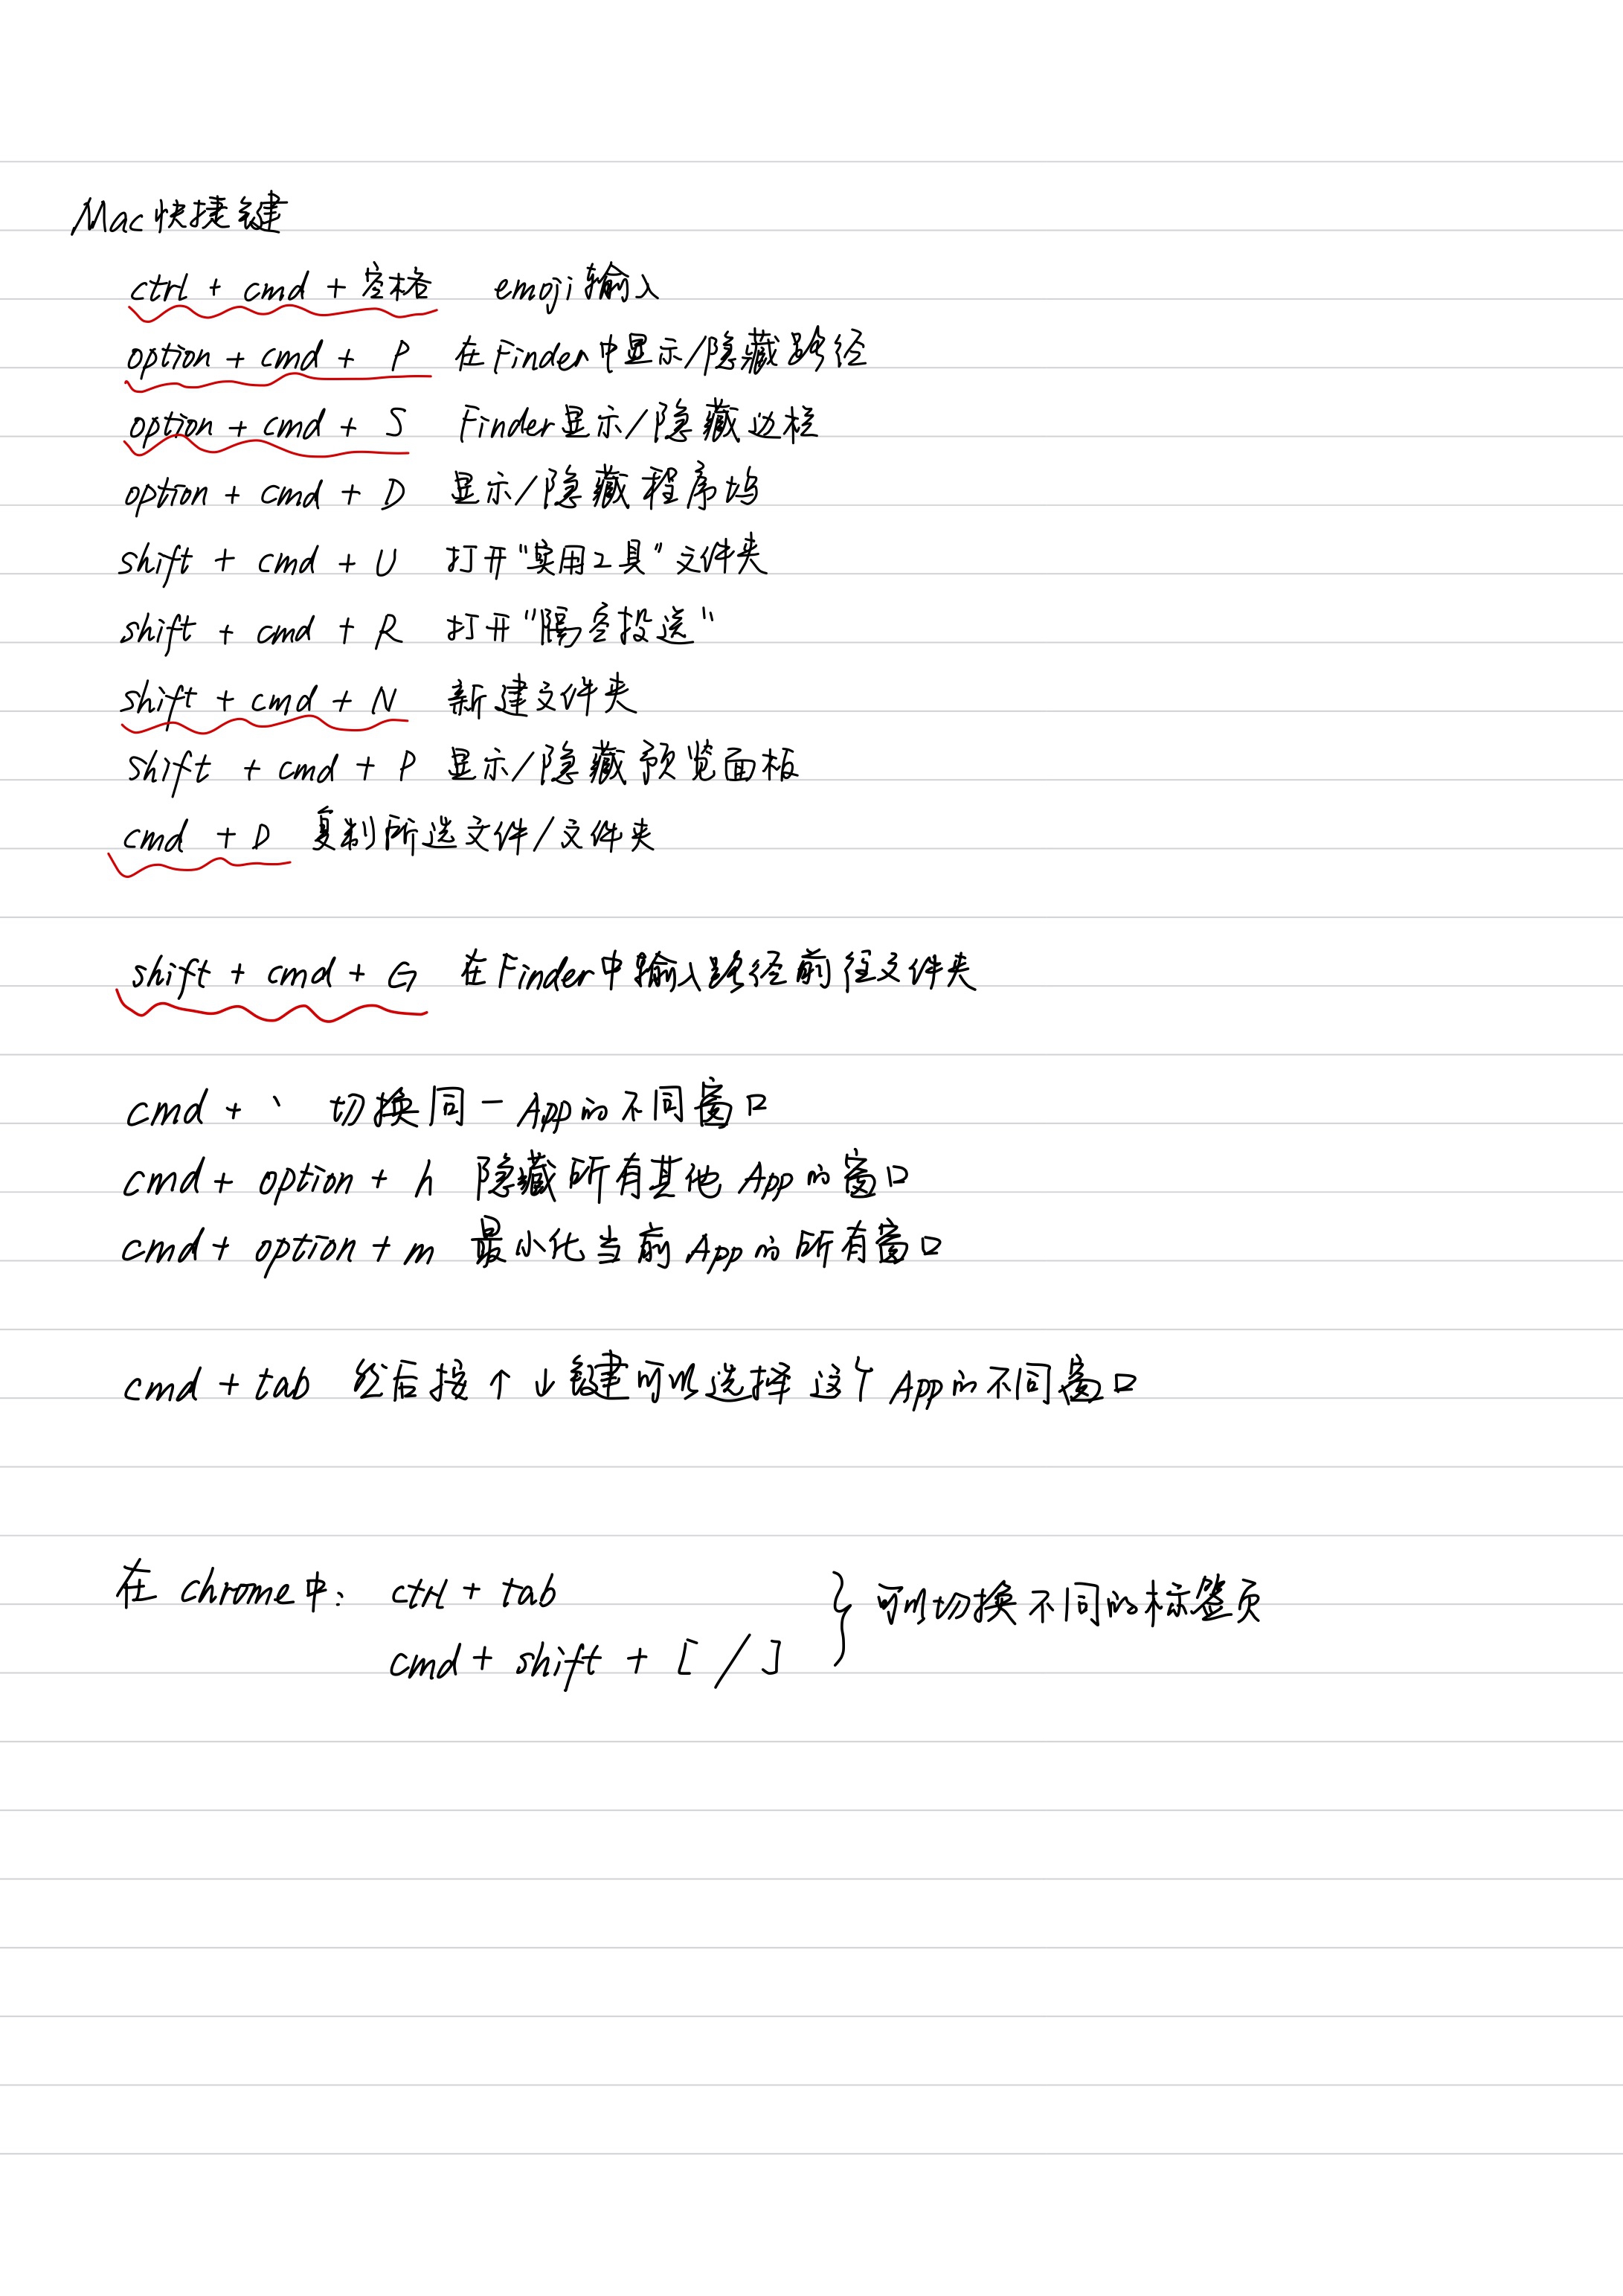 Mac快捷键
ctrl + cmd + 空格 emoji输入
option + cmd + P 在Finder中显示/隐藏路径
option + cmd + S Finder显示/隐藏边栏
option + cmd + D 显示/隐藏程序坞
shift + cmd + U 打开"实用工具"文件夹
shift + cmd + R 打开"隔空投送"
shift + cmd + N 新建文件夹
shift + cmd + P 显示/隐藏预览面板
cmd + D 复制所选文件/文件夹
shift + cmd + G 在Finder中输入路径前往文件夹
cmd + ` 切换同一App的不同窗口
cmd + option + h 隐藏所有其他App的窗口
cmd + option + m 最小化当前App的所有窗口
cmd + tab 然后按↑↓键可以选择这个App的不同窗口
在chrome中: ctrl + tab } 可以切换不同的标签页
cmd + shift + [ / ]